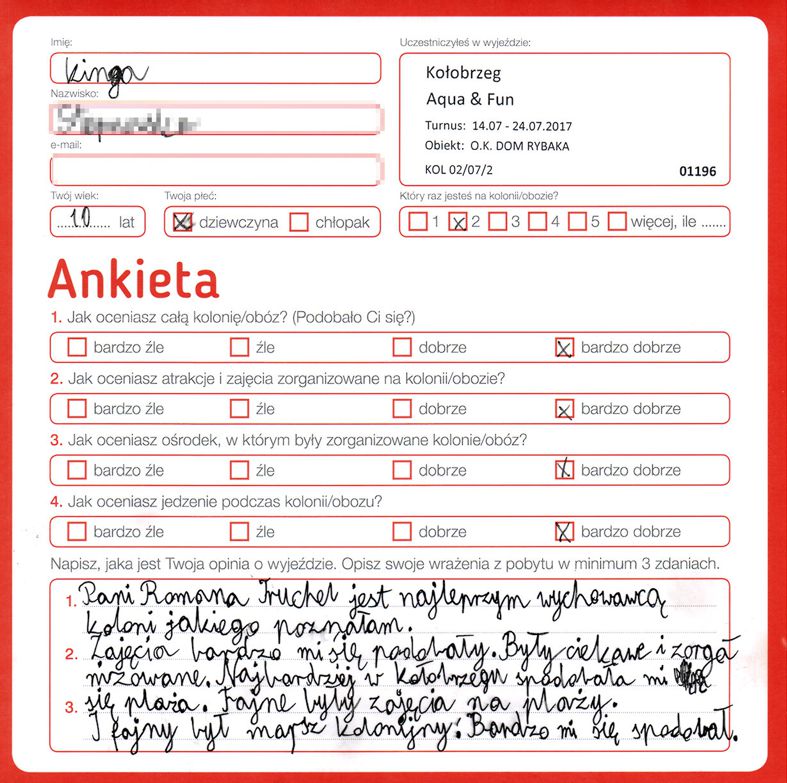 Imię:
Kinga
Nazwisko:
e-mail:
Twój wiek:
10 lat
Twoja płeć:
dziewczyna chłopak
Uczestniczyłeś w wyjeździe:
Kołobrzeg
Aqua & Fun
Turnus: 14.07 - 24.07.2017
Obiekt: O.K. DOM RYBAKA
KOL 02/07/2 01196
Który raz jesteś na kolonii/obozie?
1 x 2 3 4 5 więcej, ile .......
Ankieta
1. Jak oceniasz całą kolonię/obóz? (Podobało Ci się?)
bardzo źle źle dobrze x bardzo dobrze
2. Jak oceniasz atrakcje i zajęcia zorganizowane na kolonii/obozie?
bardzo źle źle dobrze x bardzo dobrze
3. Jak oceniasz ośrodek, w którym były zorganizowane kolonie/obóz?
bardzo źle źle dobrze x bardzo dobrze
4. Jak oceniasz jedzenie podczas kolonii/obozu?
bardzo źle źle dobrze x bardzo dobrze
Napisz, jaka jest Twoja opinia o wyjeździe. Opisz swoje wrażenia z pobytu w minimum 3 zdaniach.
1. Pani Romana Truchel jest najleprzym wychowawcą
koloni jakiego poznałam.
2. Zajęcia bardzo mi się podobały. Były ciekawe i zorga
nizowane. Najbardziej w kołobrzegu spodobała mi
3. się plaża. Fajne były zajęcia na plaży.
I fajny był marsz kolonijny! Bardzo mi się spodobał.